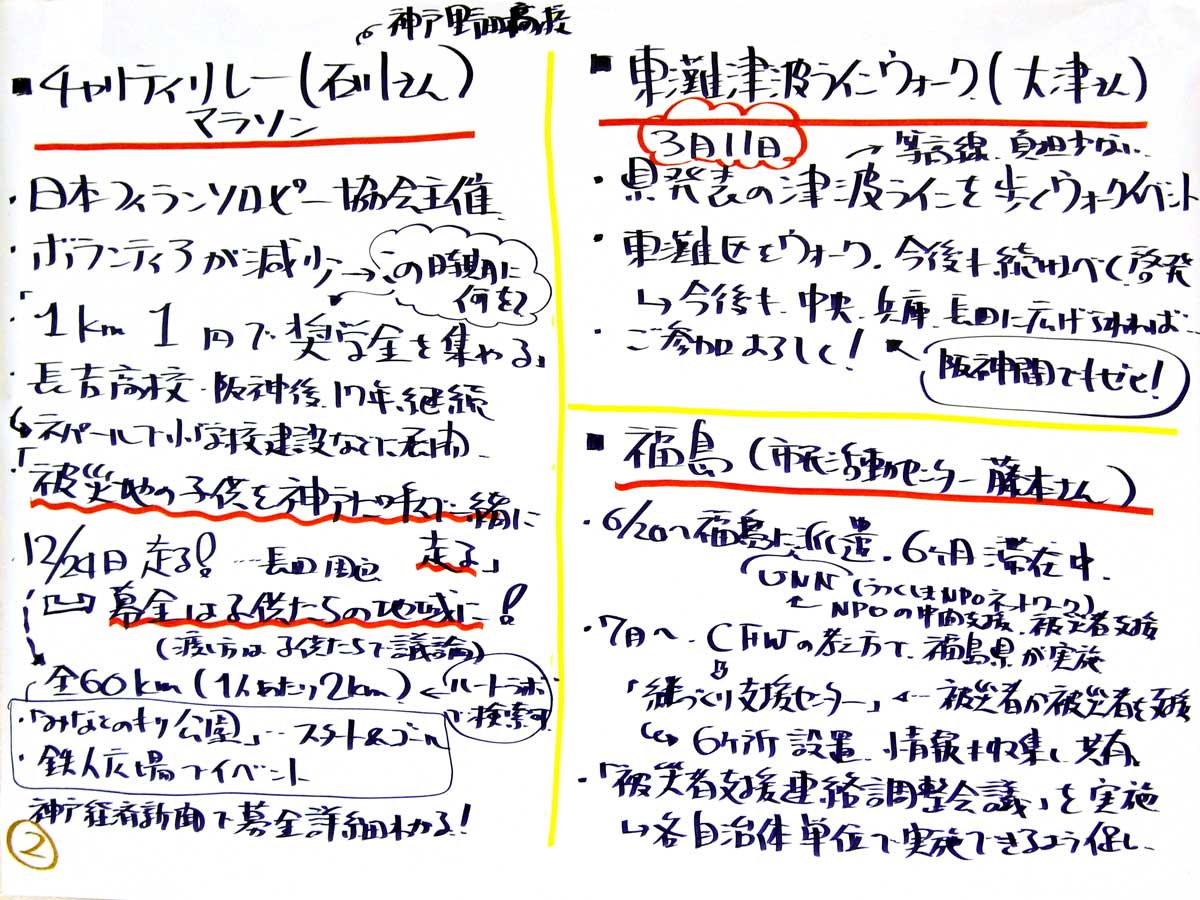 神戸野田高校
■チャリティリレー(石川さん)
マラソン
・日本フィランソロピー協会主催
・ボランティアが減少→この時期に
何を?
・「1km 1円で奨学金を集める」
・長吉高校・阪神後、17年継続
↳ネパールで小学校建設などに活用
・「被災地の子供を神戸に呼び一緒に
走る」
12/24日 走る! …長田周辺
募金は子供たちの地域に!
(渡し方は子供たちで議論)
全60km(1人あたり2km)←ルートラボ
で検索可
・「みなとのもり公園」…スタート&ゴール
・鉄人広場でイベント
神戸経済新聞で募金詳細わかる!
②
■東灘津波ラインウォーク(大津さん)
3月11日
→等高線、負担少ない
・県発表の津波ラインを歩くウォークイベント
・東灘区をウォーク。今後も続けべく啓発
↳今後も、中央、兵庫、長田に広げられれば…
・ご参加よろしく!
阪神間でもぜひ!
■福島(市民活動センター 藤本さん)
・6/20〜福島に派遣。6ヶ月滞在中。
UNN(うつくしまNPOネットワーク)
←NPOの中間支援、被災者支援
・7月〜、CFWの考え方で、福島県が実施
「絆づくり支援センター」←…被災者が被災者を支援
↳6ヶ所設置、情報も収集し共有
・「被災者支援連絡調整会議」を実施
↳各自治体単位で実施できるよう促し